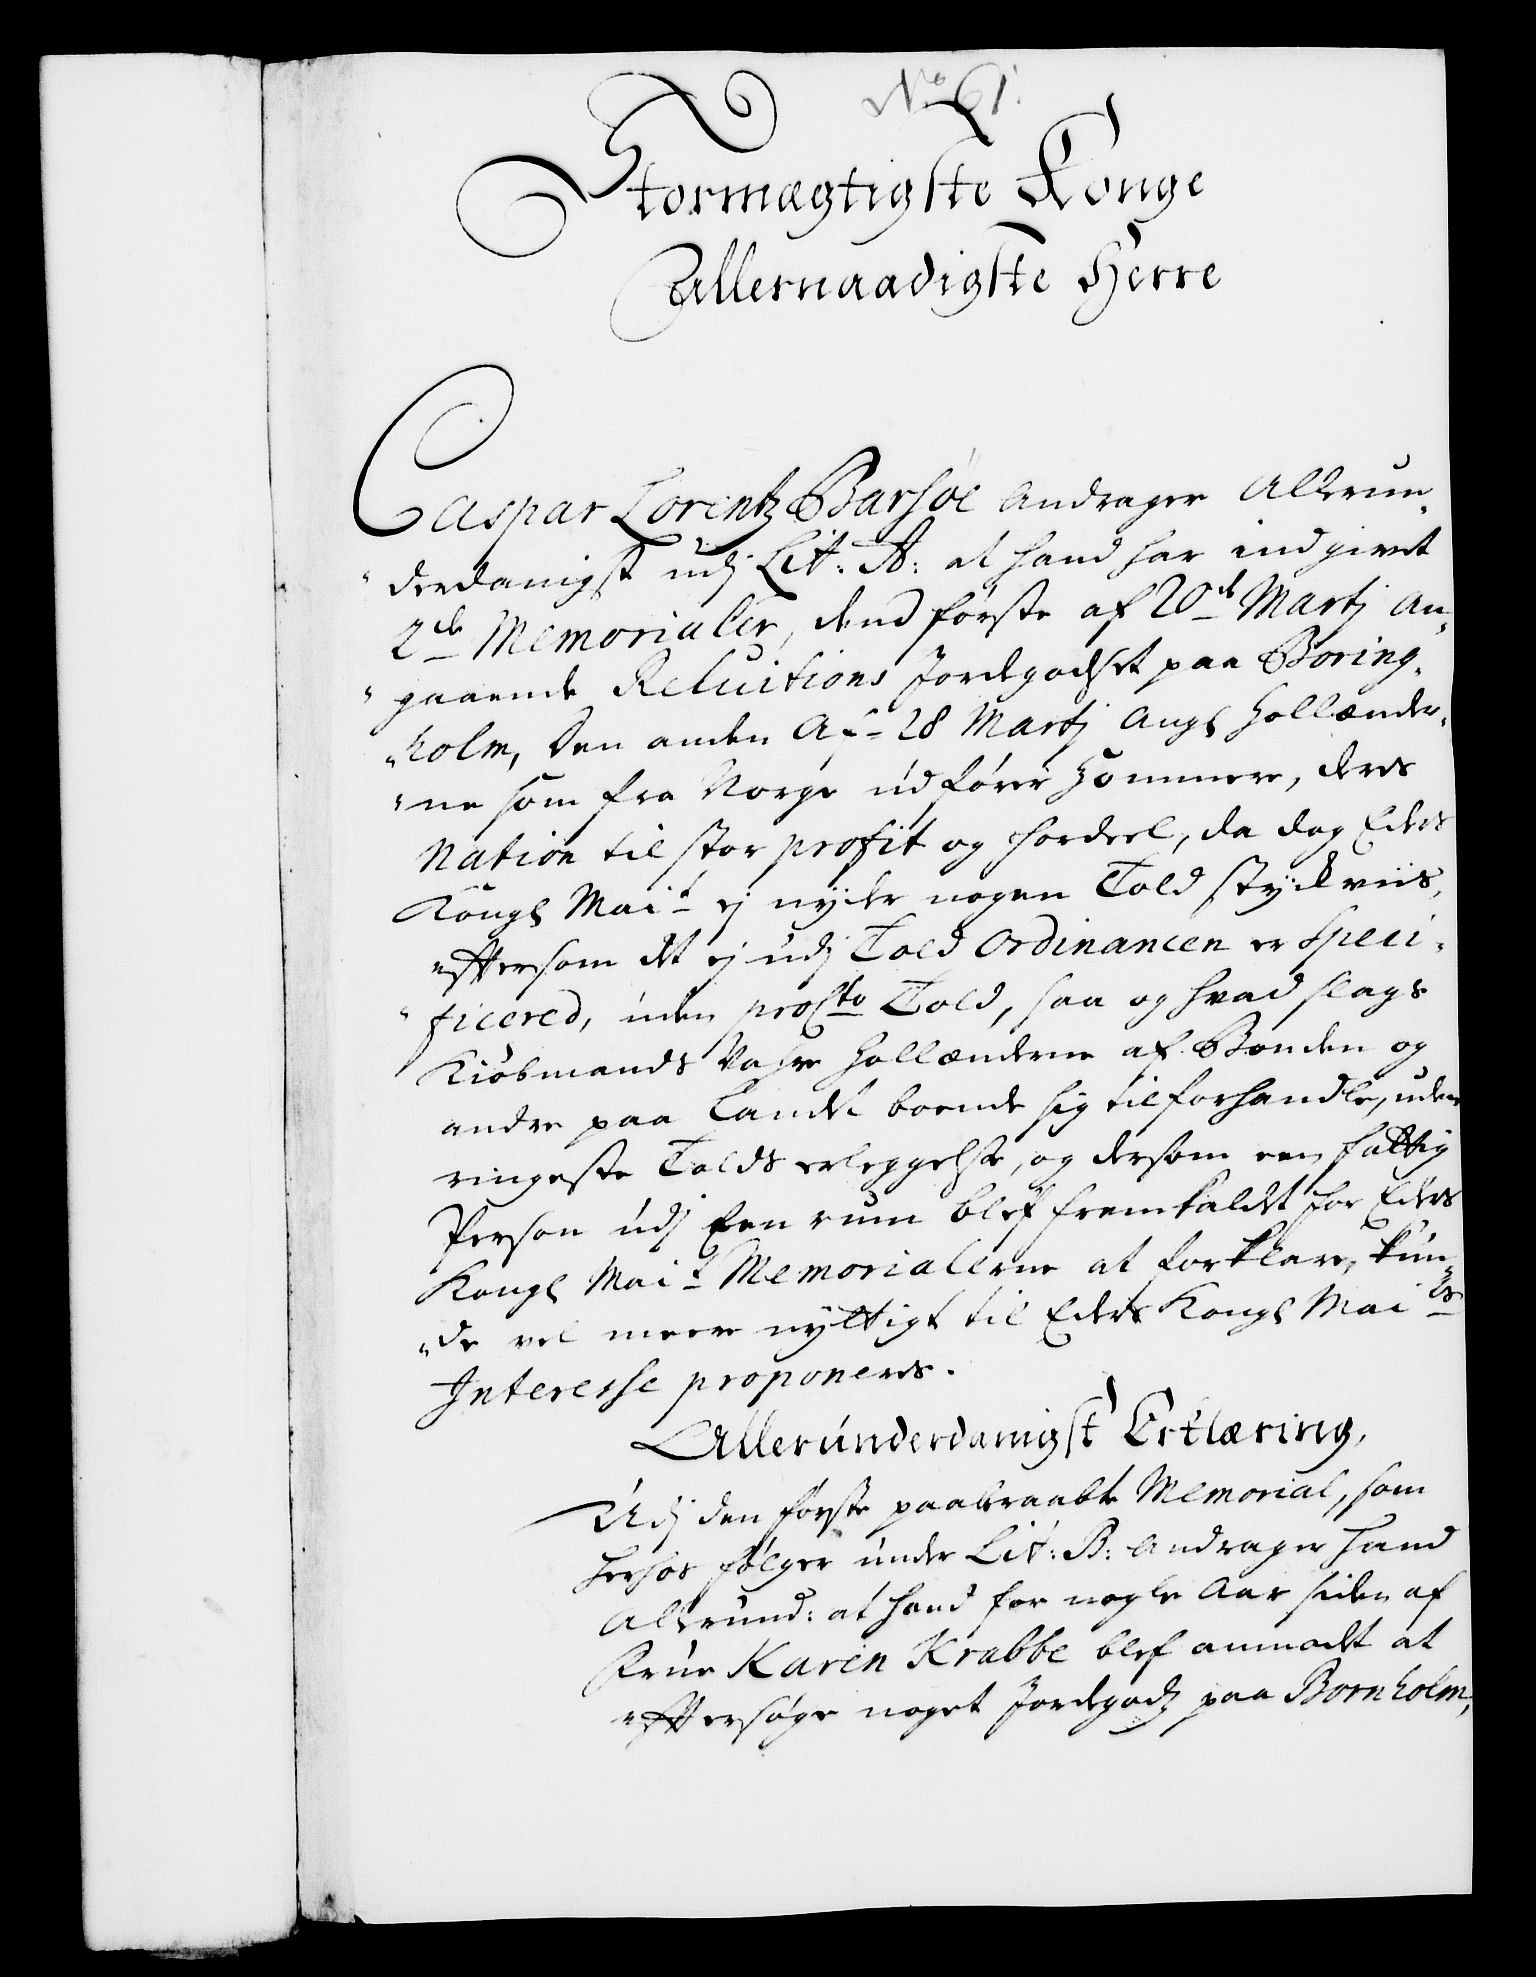 No 61.
Stormægtigste Konge
Allernaadigste Herre
Caspar Lorentz Barsøe andrager allerun„
„derdanigst udj Lit: A: at hand har indgivet
2de Memorialer, dend første af 20de Martj an„
„gaaende Reluitions Jordegodset paa Boring„
„holm, den anden af 28 Martj angl Hollænder„
„ne som fra Norge udfører Hommere, deres
Nation til stor profit og fordeel, da dog Eders
Kongl Mait ej nyder nogen Told styckviis,
eftersom det ej udj Told Ordinancen er speci„
„ficered, uden proCto Told, saa og hvad slags
Kiøbmands Vahre Hollænderne af Bonden og
andre paa Landet boende sig tilforhandle, uden
ringeste Tolds erleggelse, og dersom een fattig
Person udj Een rum blef fremkaldet for Eders
Kongl Maits Memorialerne at forklare, kun„
„de vel meere nyttigt til Eders Kongl Maits
Interesse proponeres.
Allerunderdanigst Erklæring,
Udj den første paaberaabte Memorial, som
herhos følger under Lit: B: andrager hand
allerund: at hand for nogle Aar siden af
Frue Karen Krabbe blef anmodet at
eftersøge noget Jordegods paa Bornholm,